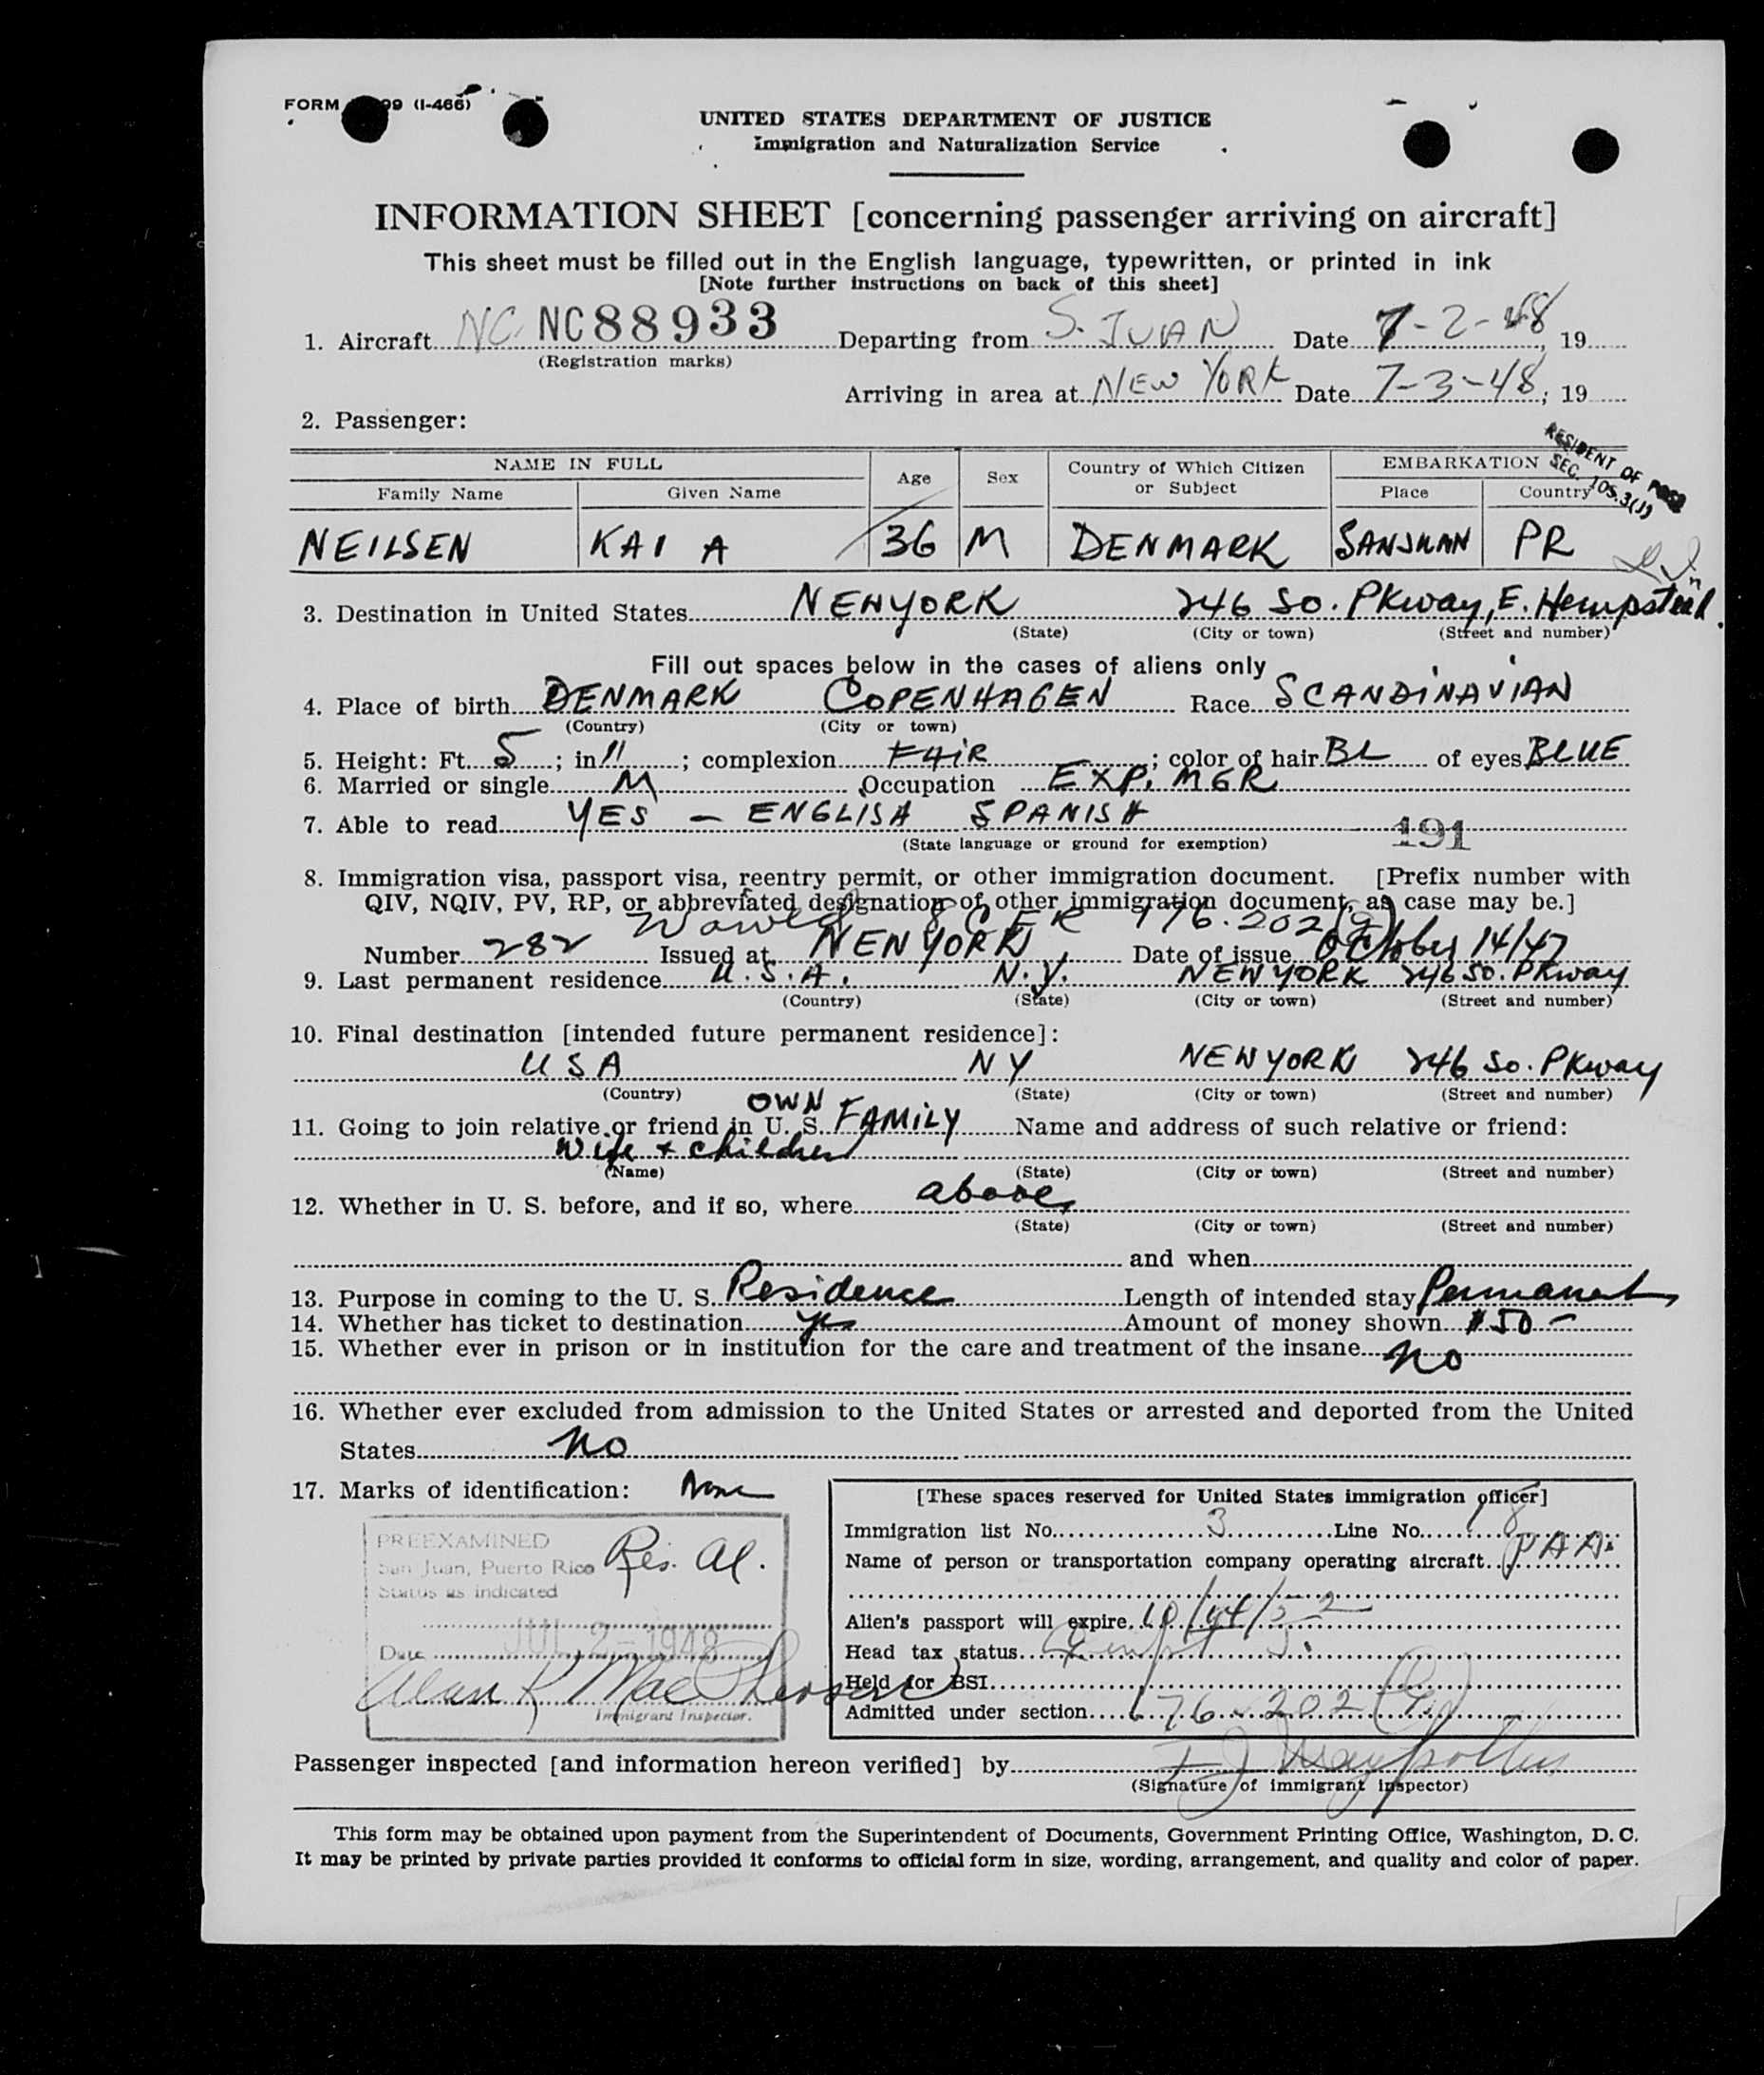 FORM 99 (I-466)
UNITED STATES DEPARTMENT OF JUSTICE
Immigration and Naturalization Service
INFORMATION SHEET [concerning passenger arriving on aircraft]
This sheet must be filled out in the English language, typewritten, or printed in ink
[Note further instructions on back of this sheet]
1. Aircraft NC NC88933 Departing from S. JUAN Date 7-2-48, 19
(Registration marks)
Arriving in area at NEW YORK Date 7-3-48, 19
2. Passenger:
RESIDENT OF
SEC. 105.3(J)
NAME IN FULL Age Sex Country of Which Citizen or Subject EMBARKATION
Family Name Given Name Place Country
NEILSEN KAI A 36 M DENMARK SANJUAN PR
3. Destination in United States NEWYORK 246 So. PKway, E. Hempstead.
(State) (City or town) (Street and number)
Fill out spaces below in the cases of aliens only
4. Place of birth DENMARK COPENHAGEN Race SCANDINAVIAN
(Country) (City or town)
5. Height: Ft. 5; in 11; complexion FAIR; color of hair BL of eyes BLUE
6. Married or single M Occupation EXP. MGR
7. Able to read YES - ENGLISH SPANISH
(State language or ground for exemption) 191
8. Immigration visa, passport visa, reentry permit, or other immigration document. [Prefix number with
QIV, NQIV, PV, RP, or abbreviated designation of other immigration document, as case may be.]
Waived 8 CFR 176.202(g)
Number 282 Issued at NEWYORK Date of issue October 14/47
9. Last permanent residence U.S.A. N.Y. NEWYORK 246 So. PKway
(Country) (State) (City or town) (Street and number)
10. Final destination [intended future permanent residence]:
USA NY NEWYORK 246 So. PKway
(Country) (State) (City or town) (Street and number)
11. Going to join relative or friend in U. S. OWN FAMILY Name and address of such relative or friend:
Wife + children
(Name) (State) (City or town) (Street and number)
12. Whether in U. S. before, and if so, where above
(State) (City or town) (Street and number)
and when
13. Purpose in coming to the U. S. Residence Length of intended stay Permanent
14. Whether has ticket to destination yes Amount of money shown $50 -
15. Whether ever in prison or in institution for the care and treatment of the insane No
16. Whether ever excluded from admission to the United States or arrested and deported from the United
States No
17. Marks of identification: None
PREEXAMINED
San Juan, Puerto Rico Res. Al.
Status as indicated
Date JUL 2 - 1948
Alan K MacPherson
Immigrant Inspector.
[These spaces reserved for United States immigration officer]
Immigration list No. 3 Line No. 18
Name of person or transportation company operating aircraft PAA.
Alien's passport will expire 10/14/52
Head tax status
Held for BSI
Admitted under section 176.202(g)
Passenger inspected [and information hereon verified] by
(Signature of immigrant inspector)
This form may be obtained upon payment from the Superintendent of Documents, Government Printing Office, Washington, D. C.
It may be printed by private parties provided it conforms to official form in size, wording, arrangement, and quality and color of paper.